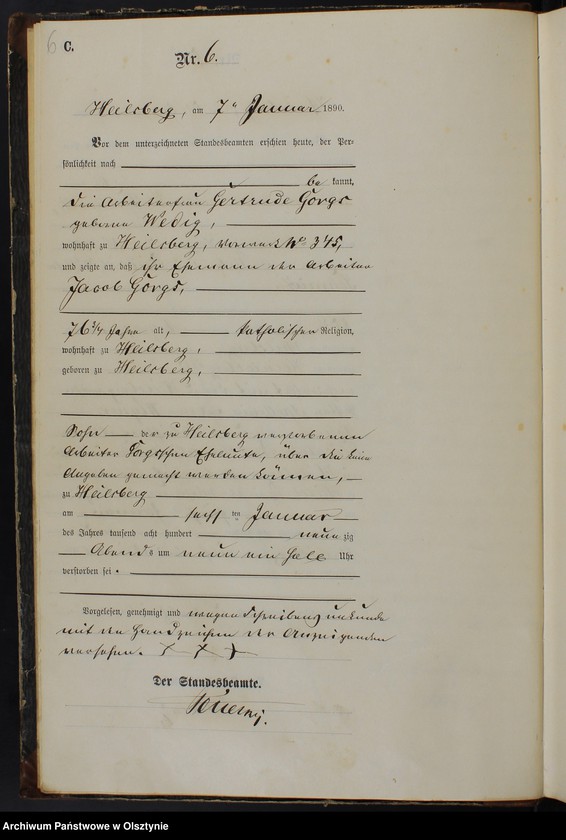 6
C.
Nr. 6.
Heilsberg, am 7ten Januar 1890.
Vor dem unterzeichneten Standesbeamten erschien heute, der Per-
sönlichkeit nach
be kannt,
die Arbeiterfrau Gertrude Gorgs
geborene Wedig,
wohnhaft zu Heilsberg, Vorwerk No 345,
und zeigte an, daß ihr Ehemann der Arbeiter
Jacob Gorgs,
76 3/4 Jahre alt, katholischer Religion,
wohnhaft zu Heilsberg,
geboren zu Heilsberg,
Sohn der zu Heilsberg verstorbenen
Arbeiter Gorgsschen Eheleute, über die keine
Angaben gemacht werden können,
zu Heilsberg
am sechsten Januar
des Jahres tausend acht hundert neunzig
Abends um neun ein halb Uhr
verstorben sei.
Vorgelesen, genehmigt und wegen Schreibensunkunde
mit den Handzeichen der Anzeigenden
versehen. + + +
Der Standesbeamte.
Archiwum Państwowe w Olsztynie